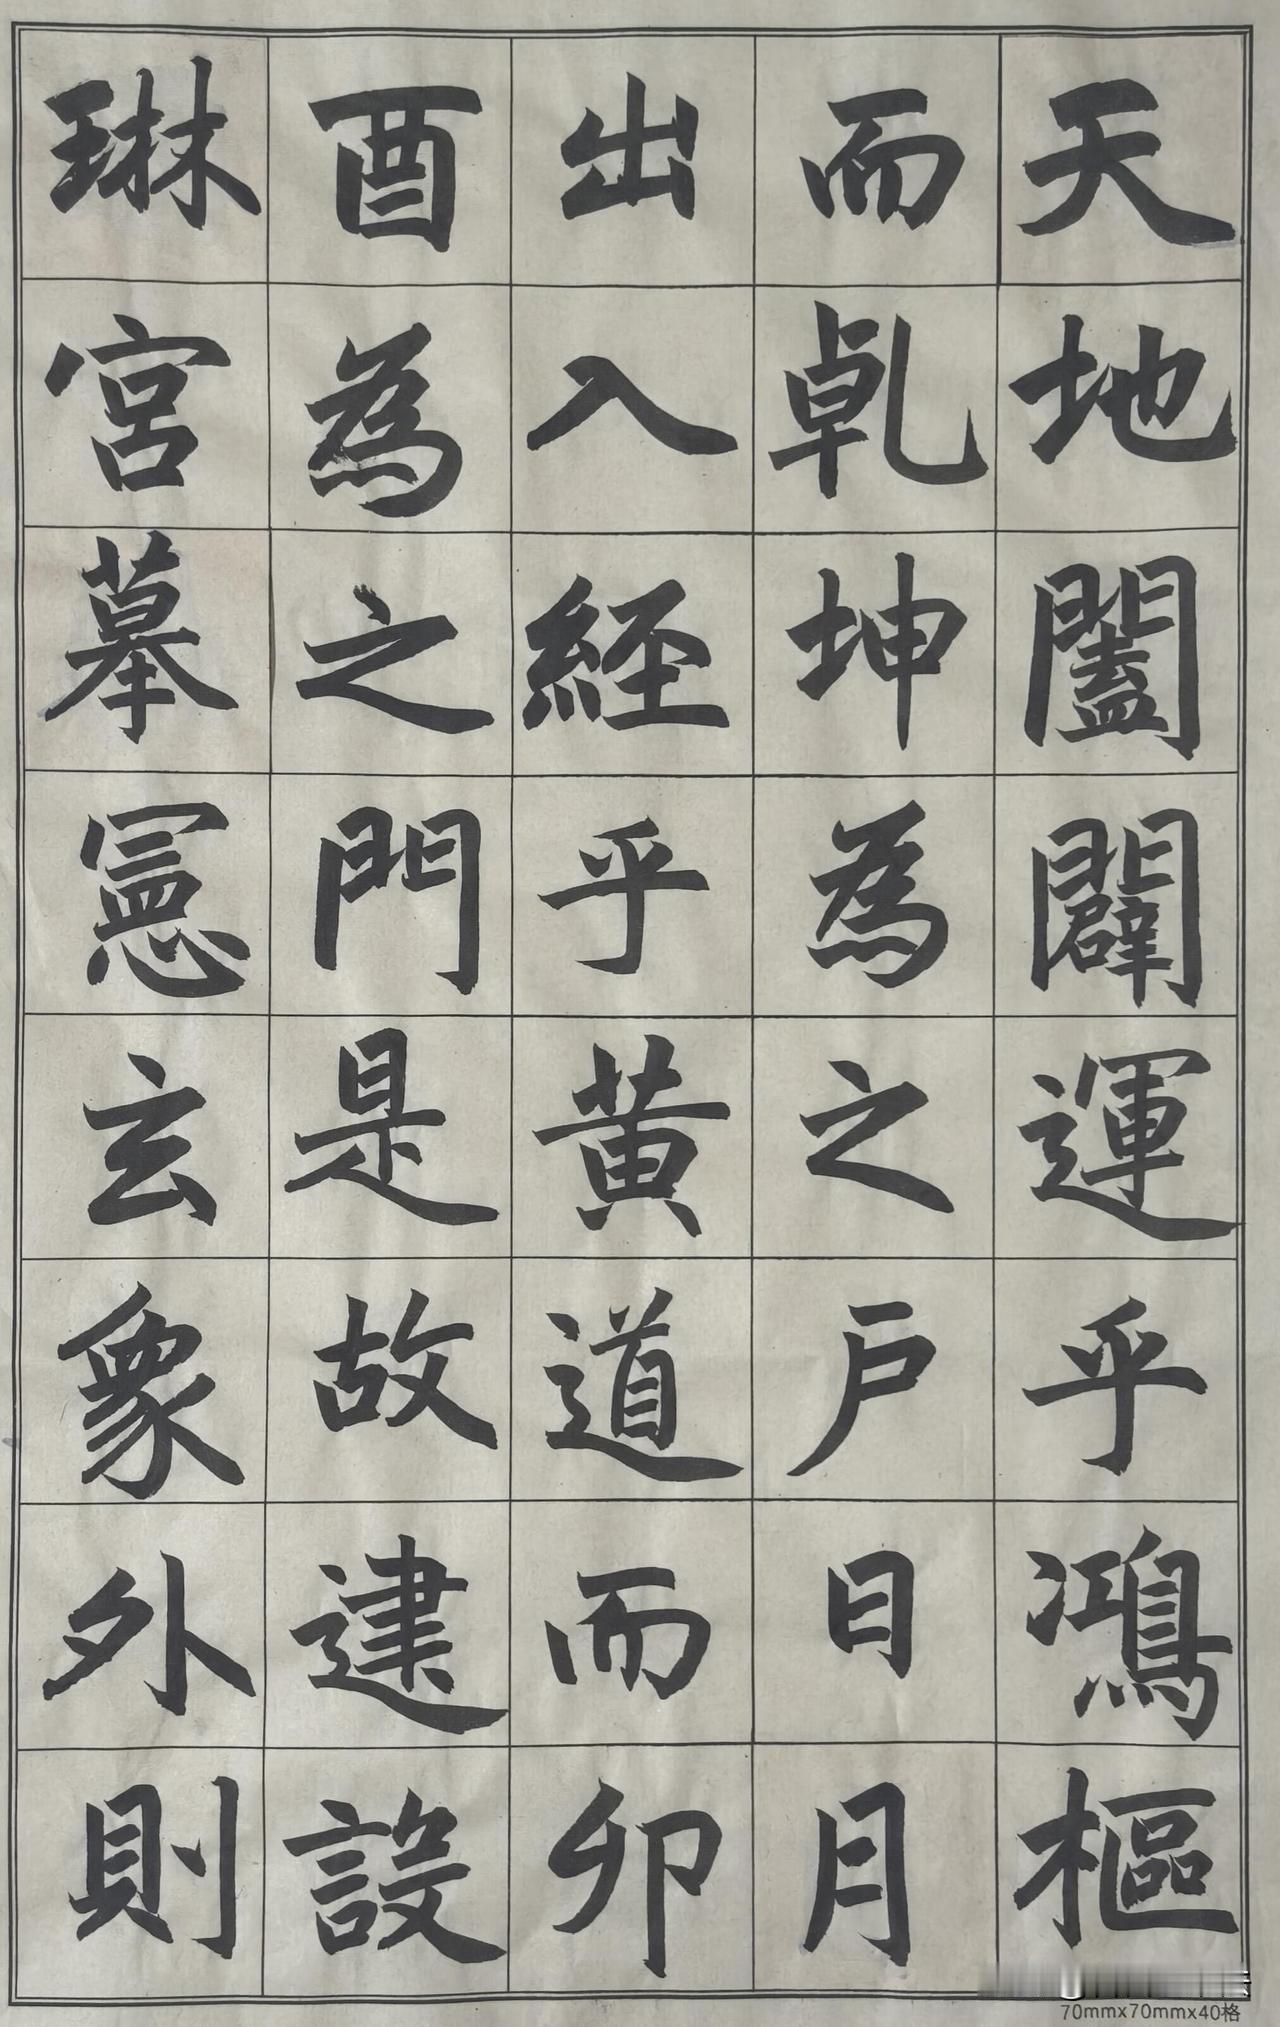 天地闔闢運乎鴻樞
而乹坤為之戶日月
出入經乎黃道而卯
酉為之門是故建設
琳宮摹憲玄象外則
70mmx70mmx40格